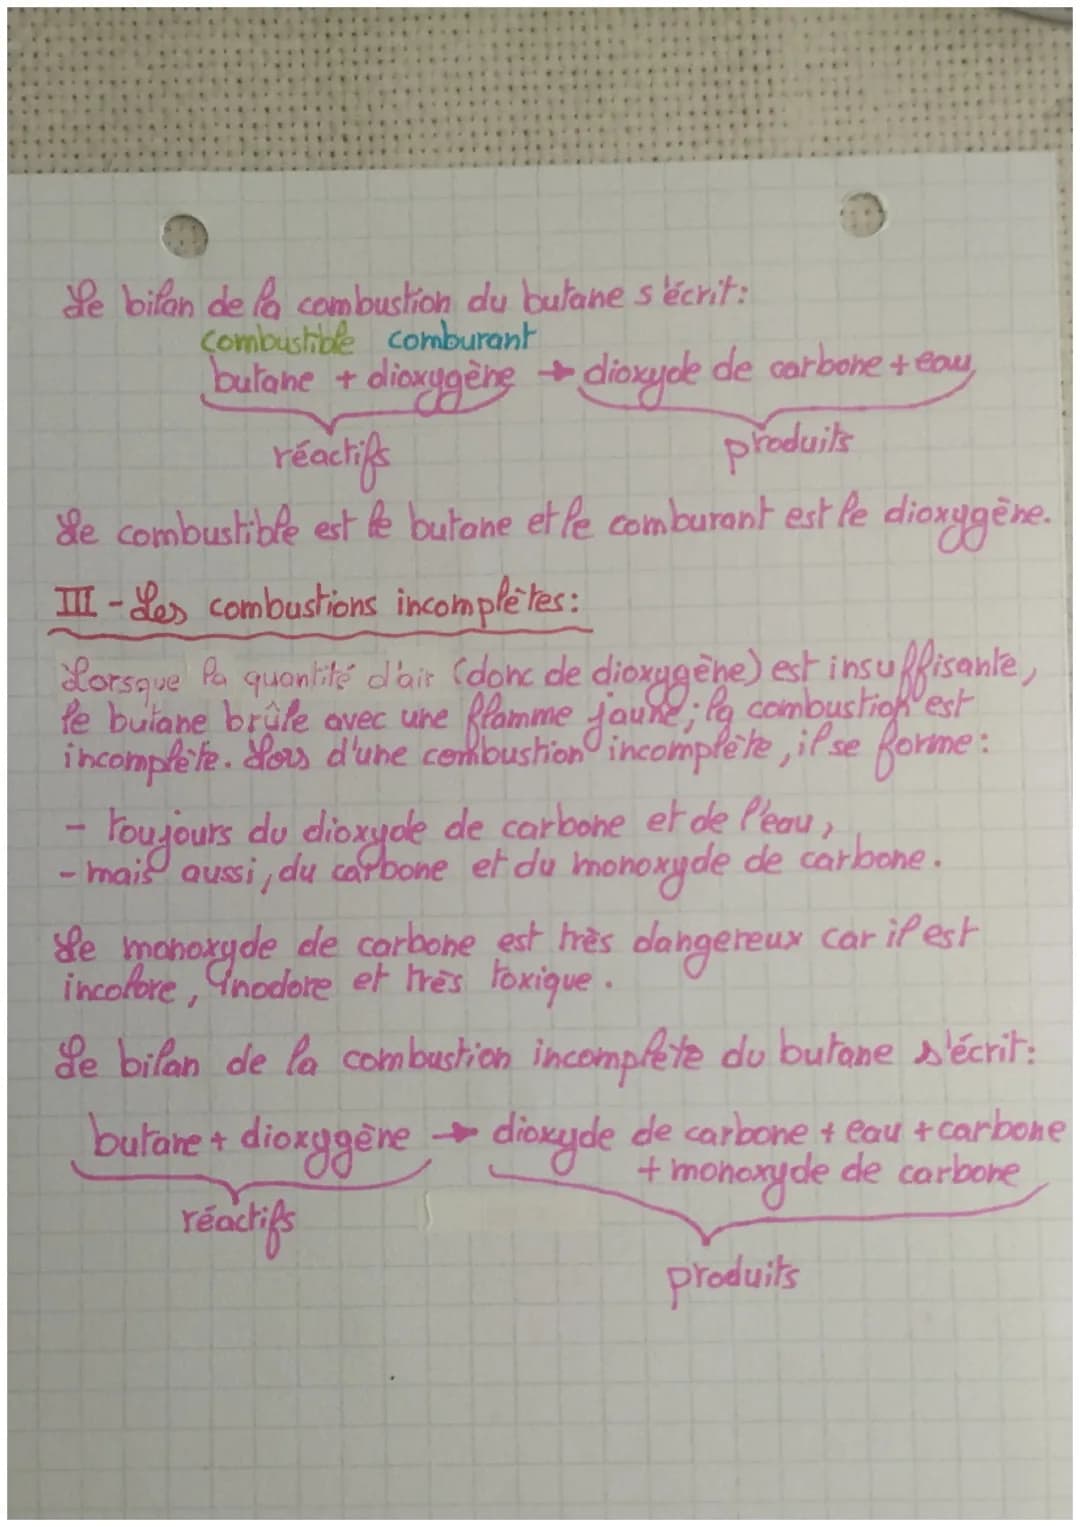 Le bilan de la combustion du butane s'écrit:
combustible comburant
butane + dioxygène → dioxyde de carbone + eau
réactifs produits
Le combustible est le butane et le comburant est le dioxygène.
III - Les combustions incomplètes:
Lorsque la quantité d'air (donc de dioxygène) est insuffisante,
le butane brûle avec une flamme jaune; la combustion est
incomplète. Lors d'une combustion incomplète, il se forme:
- toujours du dioxyde de carbone et de l'eau,
- mais aussi, du carbone et du monoxyde de carbone.
Le monoxyde de carbone est très dangereux car il est
incolore, inodore et très toxique.
Le bilan de la combustion incomplète du butane s'écrit:
butane + dioxygène → dioxyde de carbone + eau + carbone
+ monoxyde de carbone
réactifs
produits